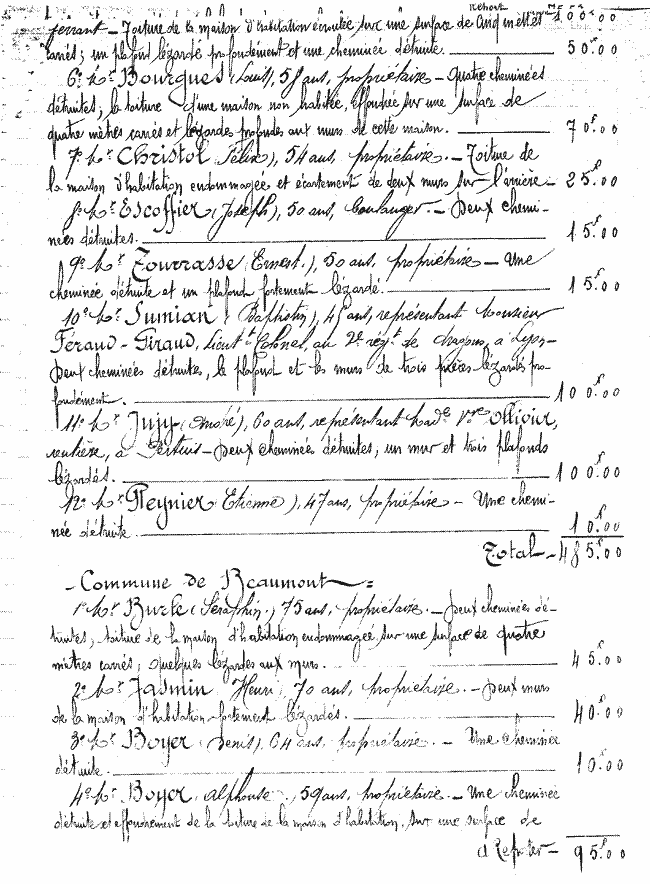 Report 100f.00
ferrant – Toiture de la maison d'habitation écroulée sur une surface de cinq mètres
carrés; un plafond lézardé profondément et une cheminée détruite. 50f.00
6° Mr Bourgues (Louis), 58 ans, propriétaire – quatre cheminées
détruites; la toiture d'une maison non habitée, effondrée sur une surface de
quatre mètres carrés et lézardes profondes aux murs de cette maison. 70f.00
7° Mr Christol (Félix), 54 ans, propriétaire. – Toiture de
la maison d'habitation endommagée et écartement de deux murs sur l'arrière – 25f.00
8° Mr Escoffier (Joseph), 50 ans, boulanger. – Deux chemi-
nées détruites. 15f.00
9° Mr Tourrasse (Ernest), 50 ans, propriétaire – Une
cheminée détruite et un plafond fortement lézardé. 15f.00
10° Mr Sumian (Baptistin), 45 ans, représentant Monsieur
Féraud-Giraud, lieutt Colonel, au 2e régt de dragons, à Lyon –
Deux cheminées détruites, le plafond et les murs de trois pièces lézardés pro-
fondément. 100f.00
11° Mr Jujy (André), 60 ans, représentant Made Vve Ollivier,
rentière, à Pertuis – Deux cheminées détruites, un mur et trois plafonds
lézardés. 100f.00
12° Mr Reynier (Etienne), 47 ans, propriétaire – Une chemi-
née détruite. 10f.00
Total – 485f.00
– Commune de Beaumont =
1° Mr Burle (Séraphin), 75 ans, propriétaire. – Deux cheminées dé-
truites, toiture de la maison d'habitation endommagée, sur une surface de quatre
mètres carrés, quelques lézardes aux murs. 45f.00
2° Mr Jasmin (Henri), 70 ans, propriétaire. – Deux murs
de la maison d'habitation fortement lézardés. 40f.00
3° Mr Boyer (Denis), 64 ans, propriétaire. – Une cheminée
détruite. 10f.00
4° Mr Boyer (Alphonse), 59 ans, propriétaire. – Une cheminée
détruite et effondrement de la toiture de la maison d'habitation, sur une surface de
à Reporter – 95f.00